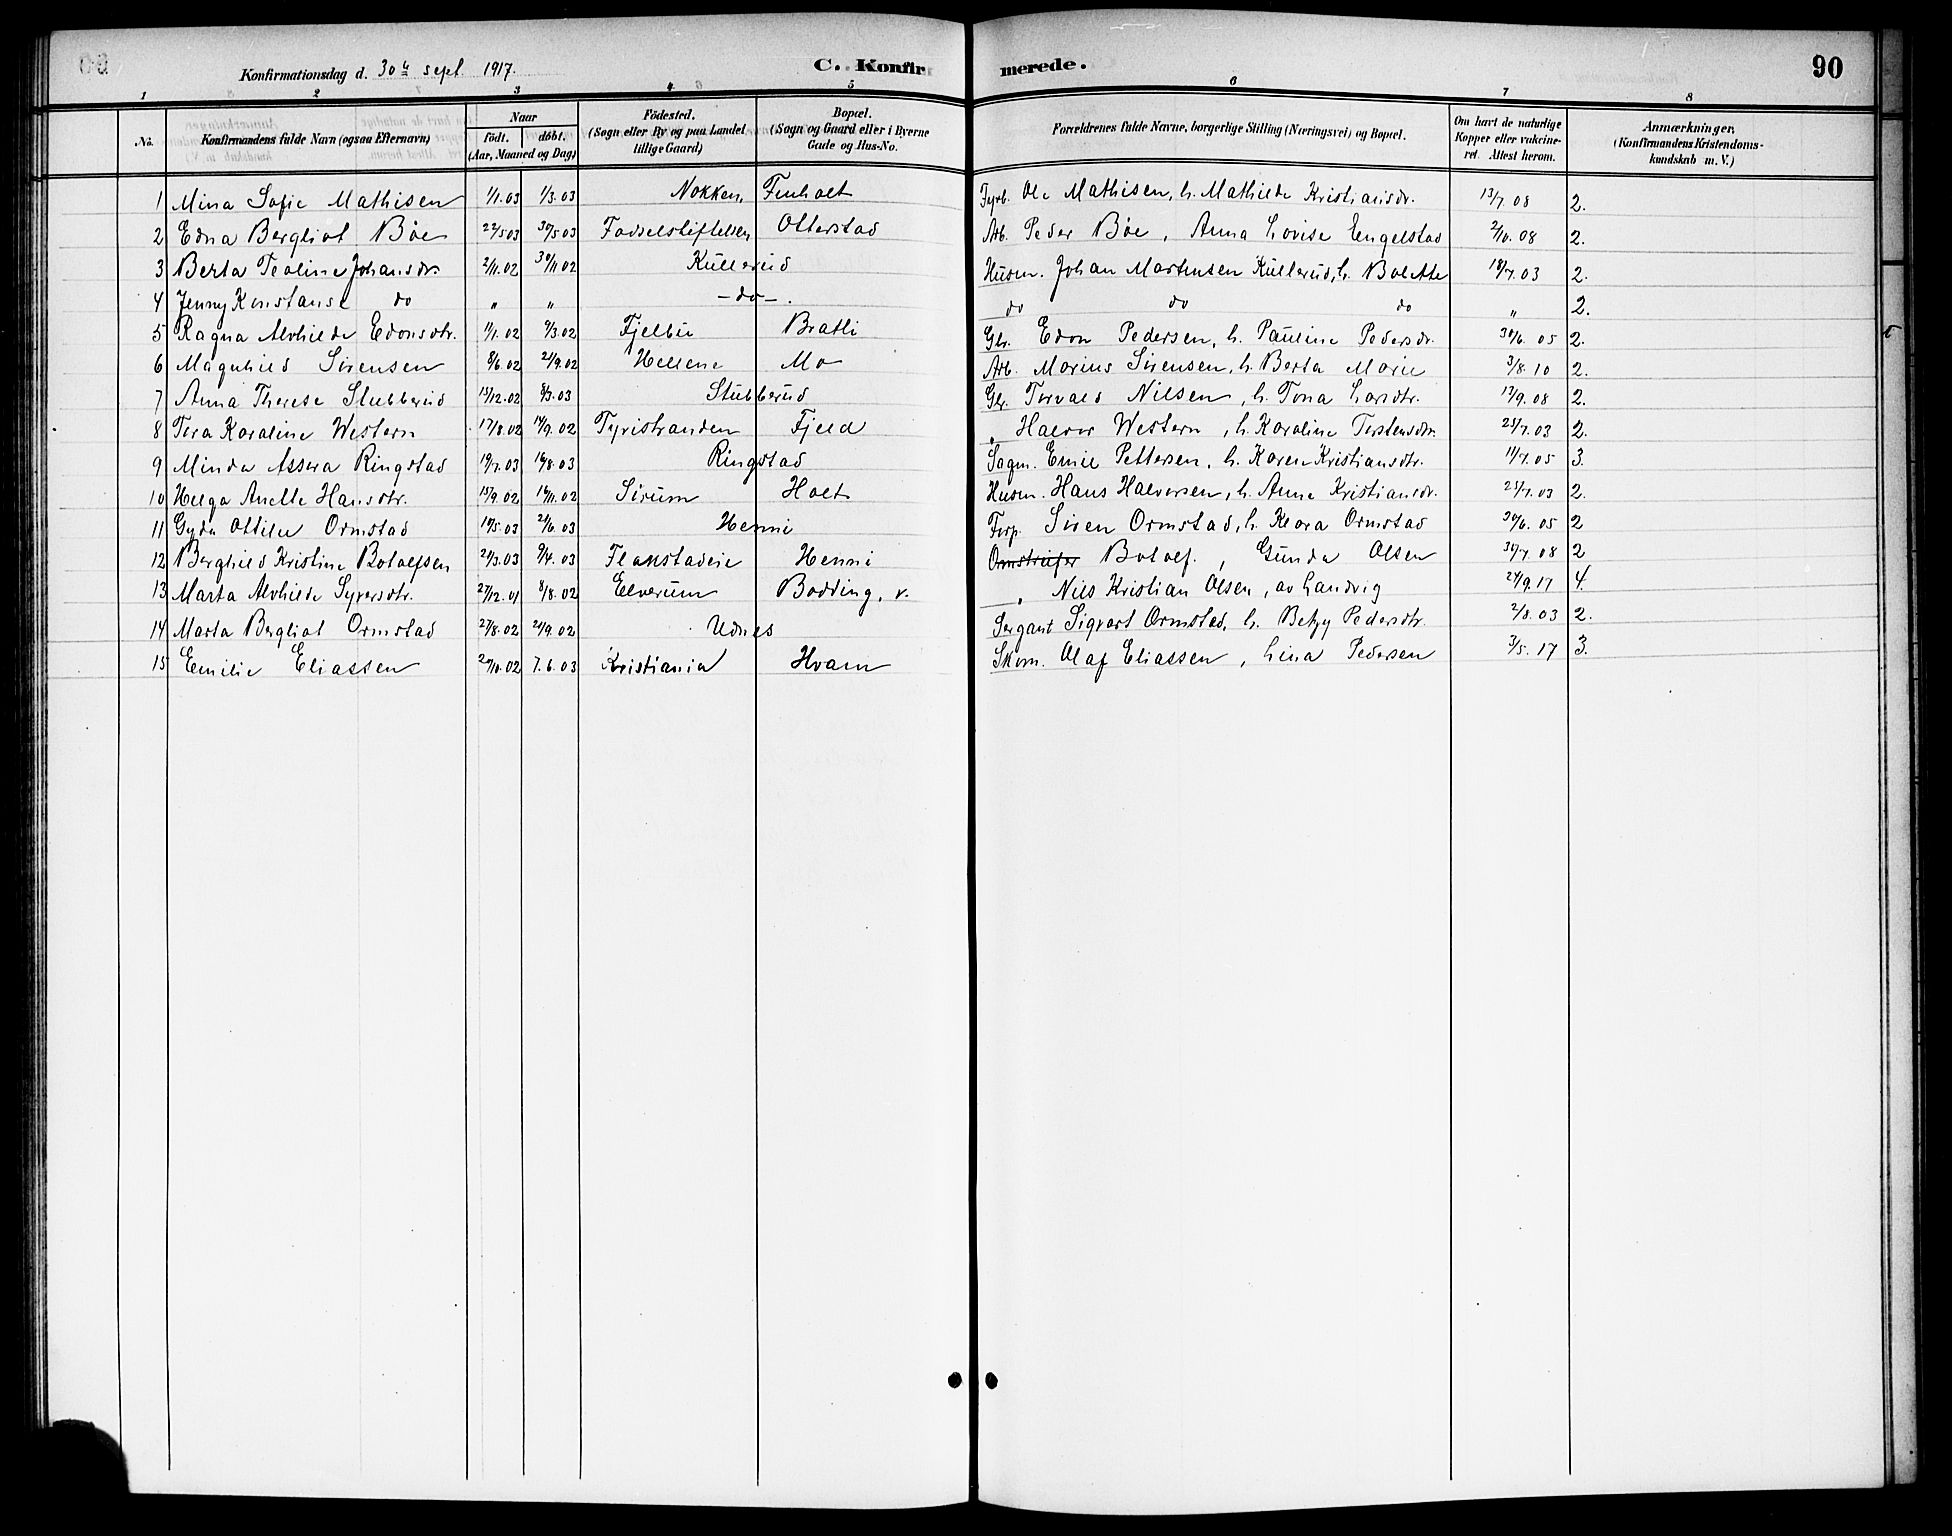 Konfirmationsdag d. 30te sept. 1917. C. Konfirmerede. 90
1 2 3 4 5 6 7 8
No. Konfirmandens fulde Navn (ogsaa Efternavn) Naar födt. döbt. (Aar, Maaned og Dag) Födested. (Sogn eller By og paa Landet tillige Gaard) Bopæl. (Sogn og Gaard eller i Byerne Gade og Hus-No. Forældrenes fulde Navne, borgerlige Stilling (Næringsvei) og Bopæl. Om havt de naturlige Kopper eller vakcineret. Attest herom. Anmærkninger, (Konfirmandens Kristendomskundskab m. V.)
1 Mina Sofie Mathisen 1/1.03 1/3.03 Nokken, Finholt Fyrb. Ole Mathisen, h. Mathilde Kristiansdr. 13/7 08 2.
2 Edna Bergliot Bøe 22/5 03 30/5 03 Fødselstiftelsen Otterstad Arb. Peder Bøe, Anna Lovise Engelstad 2/10.08 2.
3 Berta Teoline Johansdr. 2/11.02 30/11 02 Kullerud Husm. Johan Martinsen Kullerud, h. Bolette 18/7.03 2.
4 Jenny Konstanse do " " -do-. do do do " 2.
5 Ragna Alvhilde Edonsdtr. 1/1.02 9/3.02 Fjelbu Bratli Gbr. Edon Pedersen, h. Pauline Pedersdr. 30/6. 05 2.
6 Magnhild Sørensen 8/6.02 21/9.02 Hellene Mo Arb. Marius Sørensen, h. Berta Marie 3/8. 10 2.
7 Anna Therese Stubberud 15/12.02 8/3.03 Stubberud Gbr. Torvald Nilsen, h. Tona Larsdtr. 17/9.08 2.
8 Tora Karoline Western 17/8.02 14/9.02 Tyristranden Fjeld " Halvor Western, h. Karoline Torstensdtr. 25/7.03 2.
9 Minda Assera Ringstad 19/7.03 16/8.03 Ringstad Sagm. Emil Pettersen, h. Karen Kristiansdtr. 11/7.05 3.
10 Helga Anette Hansdtr. 15/9.02 16/11.02 Sørum Holt Husm. Hans Halvorsen, h. Anne Kristiansdr. 25/7.03 2.
11 Gyda Ottilie Ormstad 19/5.03 21/6.03 Henni Forp. Søren Ormstad, h. Klara Ormstad 30/6. 05 2
12 Berghild Kristine Botolfsen 24/3.03 9/4.03 Flakstadeie Henni Botolf. , Gunda Olsen 31/7.08 2
13 Marta Alvhilde Syversdtr. 27/12.01 8/8.02 Elverum Bodding, v. " Nils Kristian Olsen, av Landvig 24/9.17 4.
14 Marta Bergliot Ormstad 27/8.02 21/9.02 Udnes Sergant Sigvart Ormstad, h. Betzy Pedersdtr. 2/8.03 2.
15 Emilie Eliassen 20/10.02 7.6.03 Kristiania Hvam Skom. Olaf Eliassen, Lina Pedersen 3/5. 17 3.